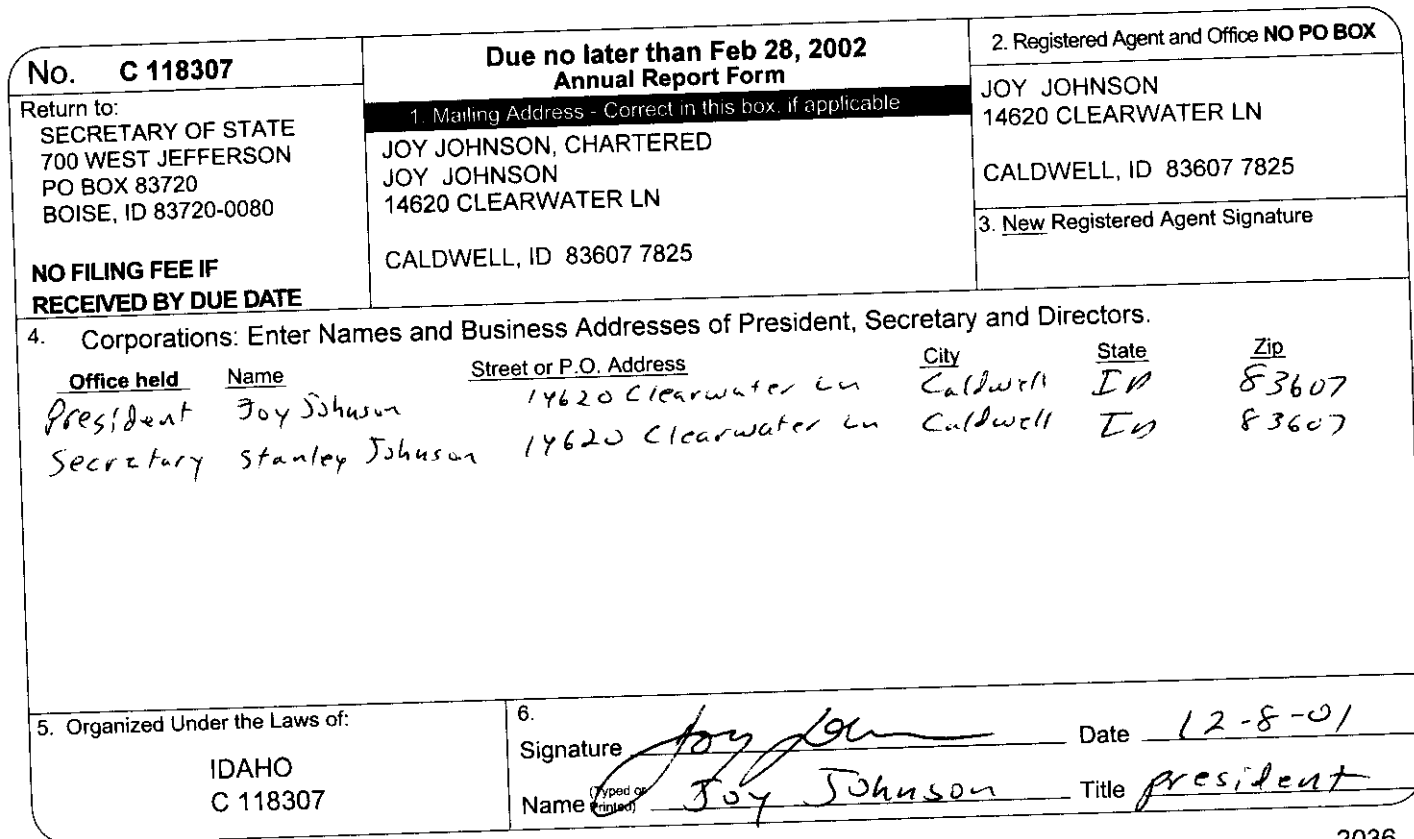 No. C 118307
Return to:
SECRETARY OF STATE
700 WEST JEFFERSON
PO BOX 83720
BOISE, ID 83720-0080
NO FILING FEE IF
RECEIVED BY DUE DATE
Due no later than Feb 28, 2002
Annual Report Form
1. Mailing Address - Correct in this box, if applicable
JOY JOHNSON, CHARTERED
JOY JOHNSON
14620 CLEARWATER LN
CALDWELL, ID 83607 7825
2. Registered Agent and Office NO PO BOX
JOY JOHNSON
14620 CLEARWATER LN
CALDWELL, ID 83607 7825
3. New Registered Agent Signature
4. Corporations: Enter Names and Business Addresses of President, Secretary and Directors.
Office held Name Street or P.O. Address City State Zip
President Joy Johnson 14620 Clearwater Ln Caldwell ID 83607
Secretary Stanley Johnson 14620 Clearwater Ln Caldwell ID 83607
5. Organized Under the Laws of:
IDAHO
C 118307
6.
Signature Joy Date 12-8-01
Name (Typed or Printed) Joy Johnson Title president
2036